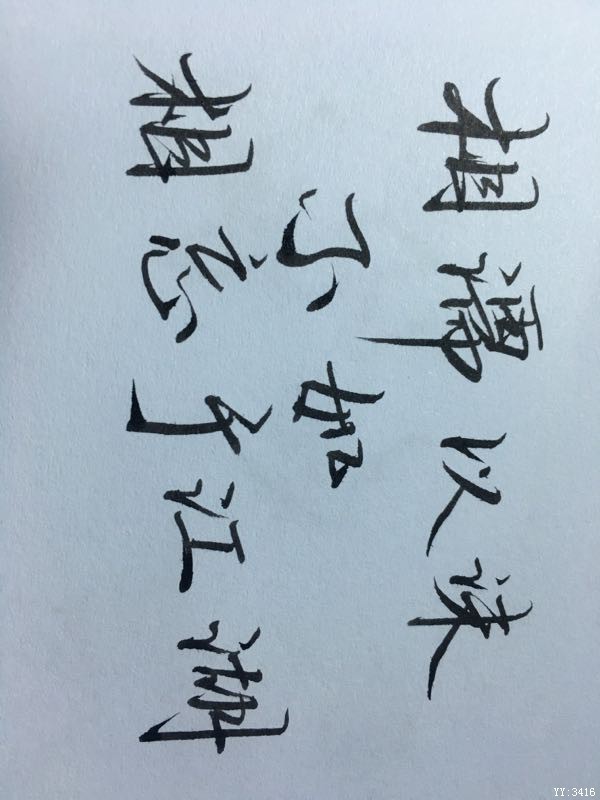 相濡以沫
不如
相忘于江湖
YY:3416